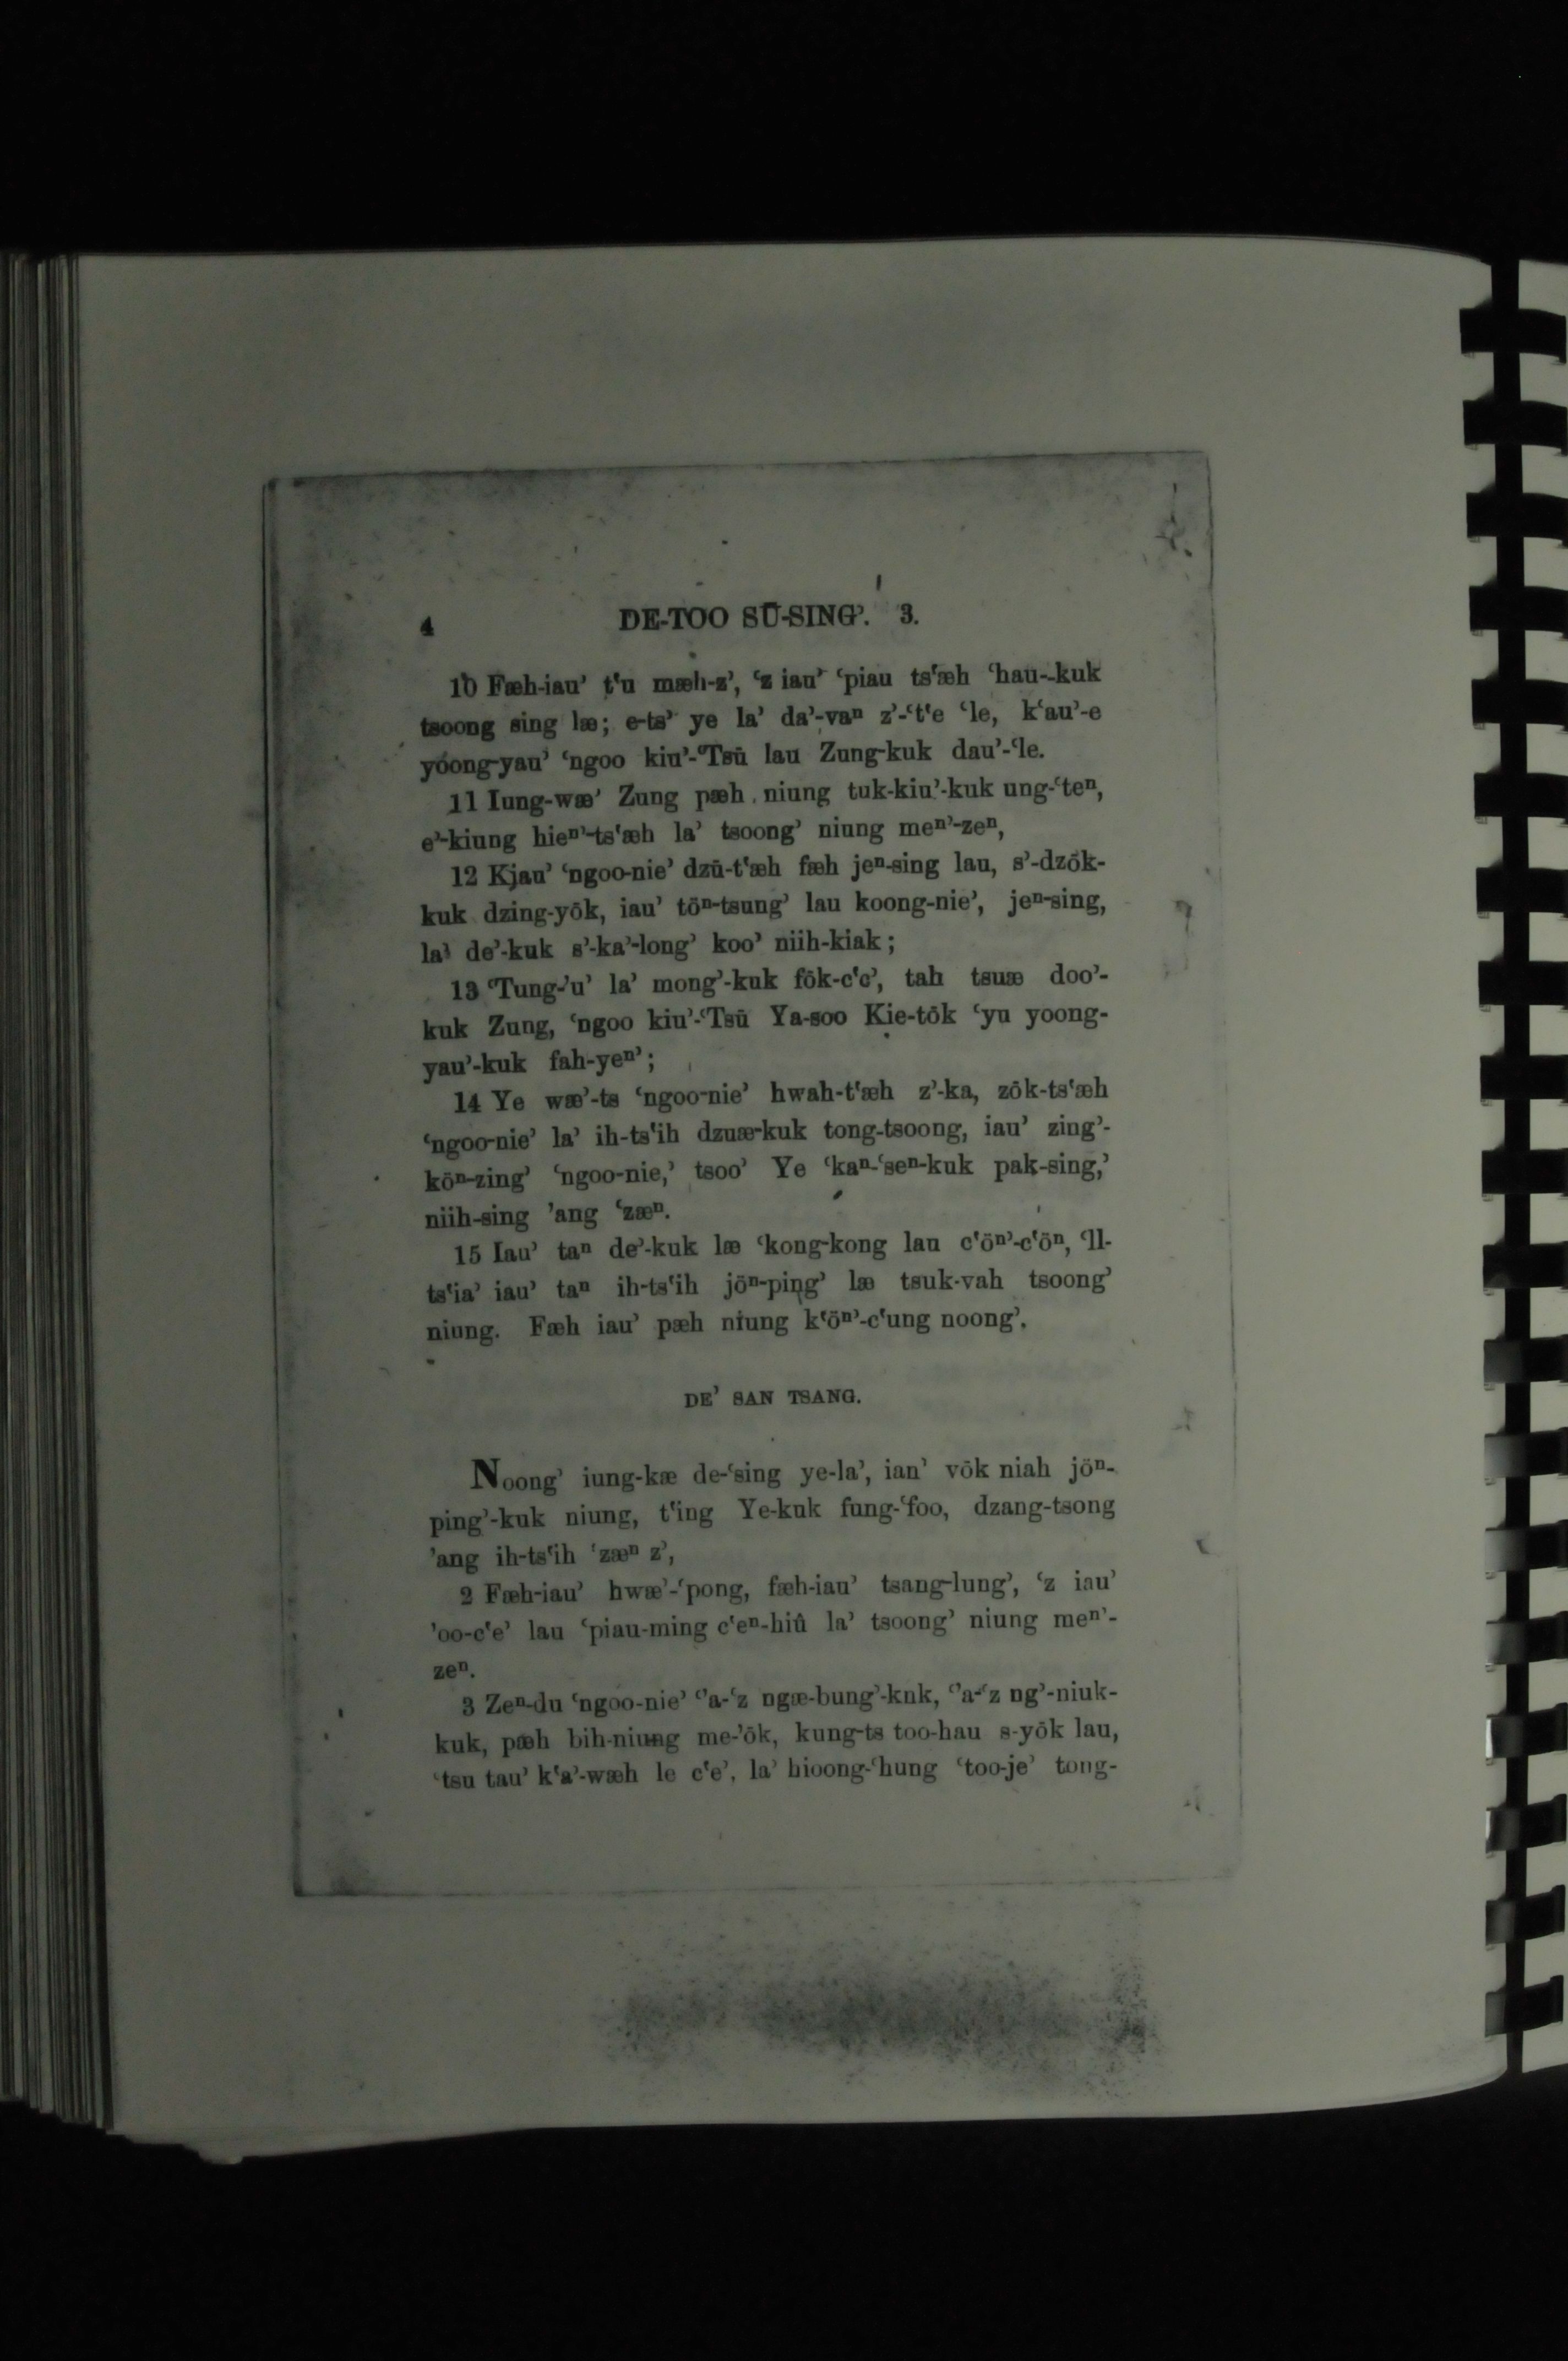 4 DE-TOO SŪ-SING’. 3.
10 Fæh-iau’ t‘u mæh-z’, ‘z iau’ ‘piau ts‘æh ‘hau--kuk
tsoong sing læ; e-ts’ ye la’ da’-vaⁿ z’-‘t‘e ‘le, k‘au’-e
yoong-yau’ ‘ngoo kiu’-‘Tsū lau Zung-kuk dau’-‘le.
11 Iung-wæ’ Zung pæh niung tuk-kiu’-kuk ung-‘teⁿ,
e’-kiung hieⁿ’-ts‘æh la’ tsoong’ niung meⁿ’-zeⁿ,
12 Kjau’ ‘ngoo-nie’ dzū-t‘æh fæh jeⁿ-sing lau, s’-dzōk-
kuk dzing-yōk, iau’ töⁿ-tsung’ lau koong-nie’, jeⁿ-sing,
la’ de’-kuk s’-ka’-long’ koo’ niih-kiak;
13 ‘Tung-’u’ la’ mong’-kuk fōk-c‘e’, tah tsuæ doo’-
kuk Zung, ‘ngoo kiu’-‘Tsū Ya-soo Kie-tōk ‘yu yoong-
yau’-kuk fah-yeⁿ’;
14 Ye wæ’-ts ‘ngoo-nie’ hwah-t‘æh z’-ka, zōk-ts‘æh
‘ngoo-nie’ la’ ih-ts‘ih dzuæ-kuk tong-tsoong, iau’ zing’-
köⁿ-zing’ ‘ngoo-nie,’ tsoo’ Ye ‘kaⁿ-‘seⁿ-kuk pak-sing,’
niih-sing ’ang ‘zæⁿ.
15 Iau’ taⁿ de’-kuk læ ‘kong-kong lau c‘öⁿ’-c‘öⁿ, ‘ll-
ts‘ia’ iau’ taⁿ ih-ts‘ih jöⁿ-ping’ læ tsuk-vah tsoong’
niung. Fæh iau’ pæh niung k‘öⁿ’-c‘ung noong’.
DE’ SAN TSANG.
Noong’ iung-kæ de-‘sing ye-la’, ian’ vōk niah jöⁿ-
ping’-kuk niung, t‘ing Ye-kuk fung-‘foo, dzang-tsong
’ang ih-ts‘ih ‘zæⁿ z’,
2 Fæh-iau’ hwæ’-‘pong, fæh-iau’ tsang-lung’, ‘z iau’
’oo-c‘e’ lau ‘piau-ming c‘eⁿ-hiû la’ tsoong’ niung meⁿ’-
zeⁿ.
3 Zeⁿ-du ‘ngoo-nie’ ‘’a-‘z ngæ-bung’-knk, ‘’a-‘z ng’-niuk-
kuk, pæh bih-niung me-’ōk, kung-ts too-hau s-yōk lau,
‘tsu tau’ k‘a’-wæh le c‘e’, la’ hioong-‘hung ‘too-je’ tong-